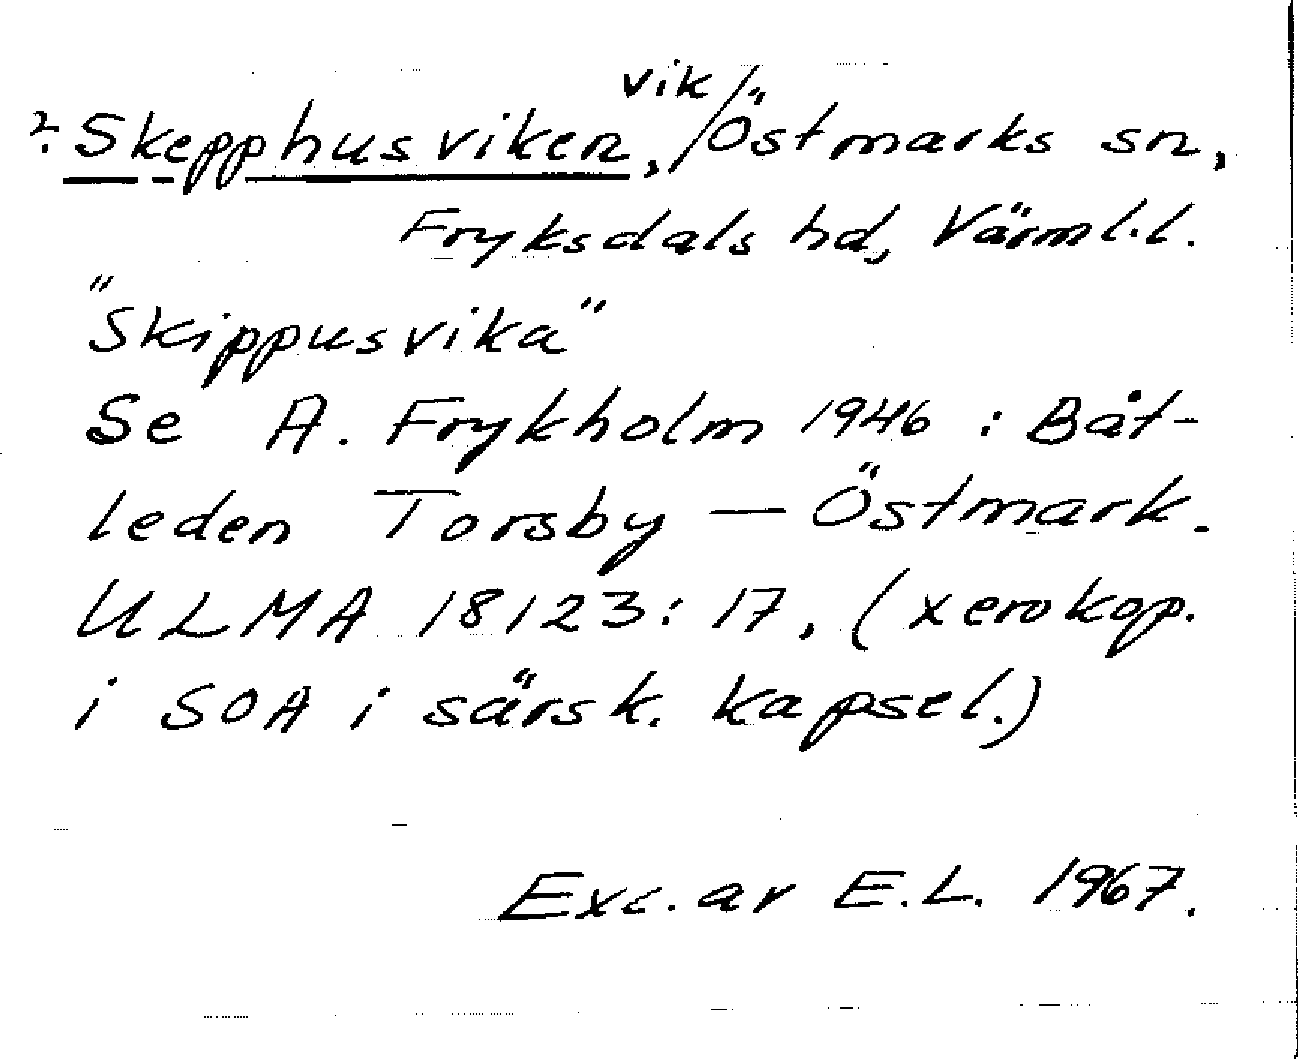 ?. Skepphusviken, vik/ Östmarks sn,
Fryksdals hd, Värml.l.
"Skippusvika"
Se A. Frykholm 1946 : Båt-
leden Torsby — Östmark.
ULMA 18123: 17. (xerokop.
i SOA i särsk. kapsel.)
Exc. av E.L. 1967.